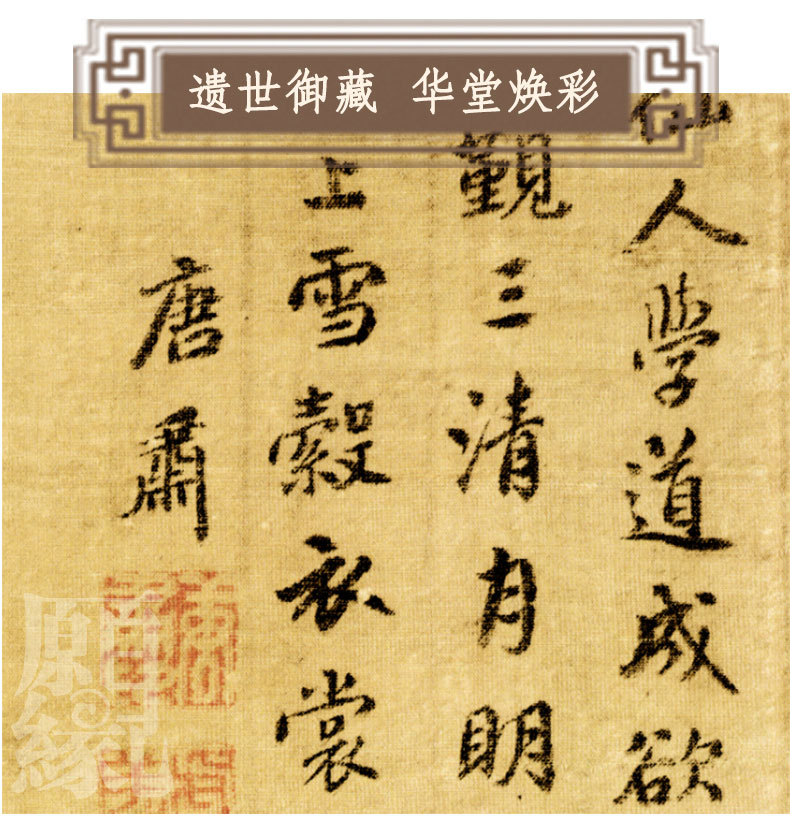 遗世御藏 华堂焕彩
仙人學道成欲
觀三清月明
上雪縠衣裳
唐肅
原百
緣事